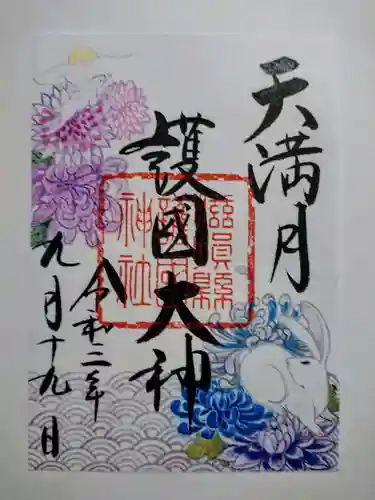 天満月
護國大神
滋賀縣
護國
神社
令和二年
九月十九日